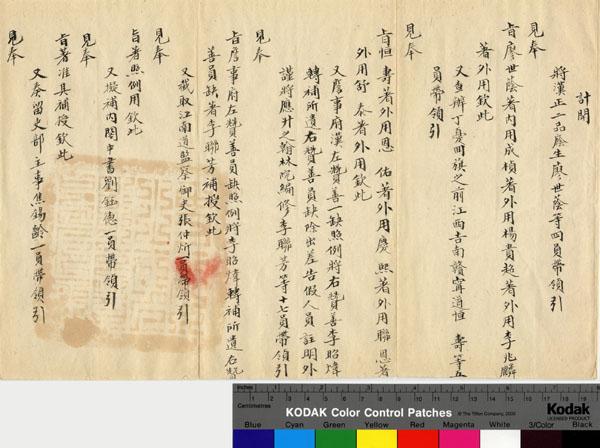 計開
將漢正二品廕生廖世蔭等四員帶領引
見奉
旨廖世蔭著內用成楨著外用楊貴超著外用李兆麟
著外用欽此
又查辦丁憂回旗之前江西吉南贛甯道恒壽等五
員帶領引
見奉
旨恒壽著外用恩佑著外用慶熙著外用聯恩著
外用舒泰著外用欽此
又詹事府漢左贊善一缺照例將右贊善李昭煒
轉補所遺右贊善員缺除出差告假人員註明外
謹將應升之翰林院編修李聯芳等十七員帶領引
見奉
旨詹事府左贊善員缺照例將李昭煒轉補所遺右贊
善員缺著李聯芳補授欽此
又截取江南道監察御史張仲炘一員帶領引
見奉
旨著照例用欽此
又擬補內閣中書劉鈺德一員帶領引
見奉
旨著准其補授欽此
又奏留吏部主事焦錫齡一員帶領引
見奉
Inches
Centimetres
KODAK Color Control Patches
© The Tiffen Company, 2000
Kodak
LICENSED PRODUCT
Blue Cyan Green Yellow Red Magenta White 3/Color Black